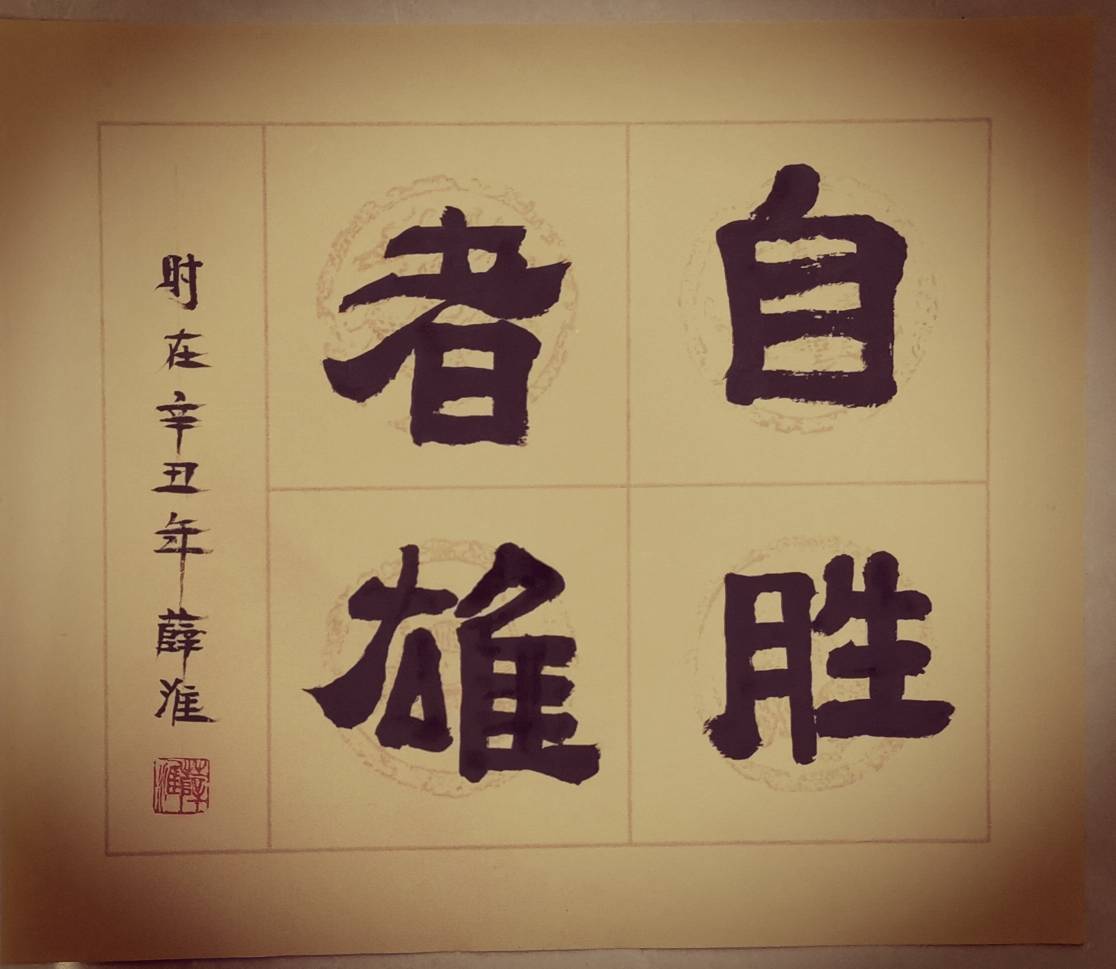 自胜
者雄
时在辛丑年薛淮
薛淮